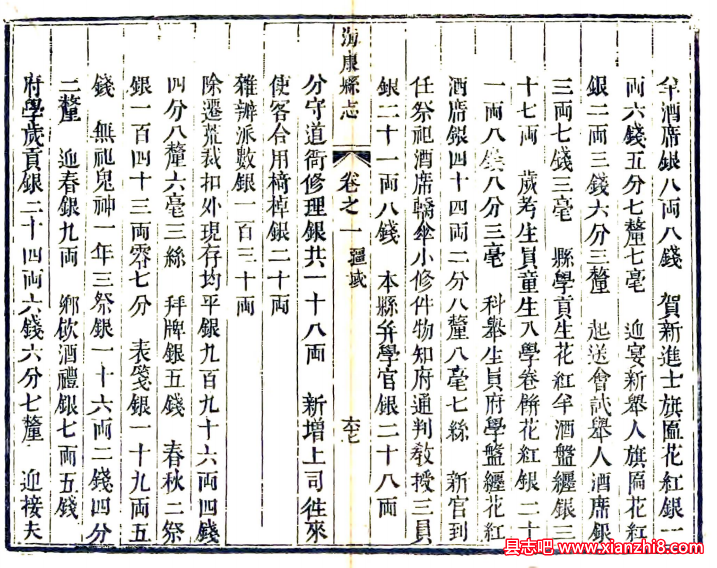 羊酒席銀八両八錢　賀新進士旗匾花紅銀一
両六錢五分七釐七毫　迎宴新舉人旗匾花紅
銀二両三錢六分三釐　起送會試舉人酒席銀
三両七錢三毫　縣學貢生花紅羊酒盤纏銀三
十七両　歲考生員童生入學卷餅花紅銀二十
一両八錢八分三毫　科舉生員府學盤纏花紅
酒席銀四十四両二分八釐八毫七絲　新官到
任祭祀酒席轎傘小修件物知府通判教授三員
銀二十一両八錢　本縣弁學官銀二十八両
海康縣志　卷之一　疆域
分守道衙修理銀共一十八両　新增上司往來
使客合用椅棹銀二十両
雜辦派數銀一百三十両
除遷荒裁扣外現存均平銀九百九十六両四錢
四分八釐六毫三絲　拜牌銀五錢　春秋二祭
銀一百四十三両零七分　表箋銀一十九両五
錢　無祀鬼神一年三祭銀一十六両二錢四分
二釐　迎春銀九両　鄉飲酒禮銀七両五錢
府學歲貢銀三十四両六錢六分七釐　迎接夫
县志吧 www.xianzhi8.com